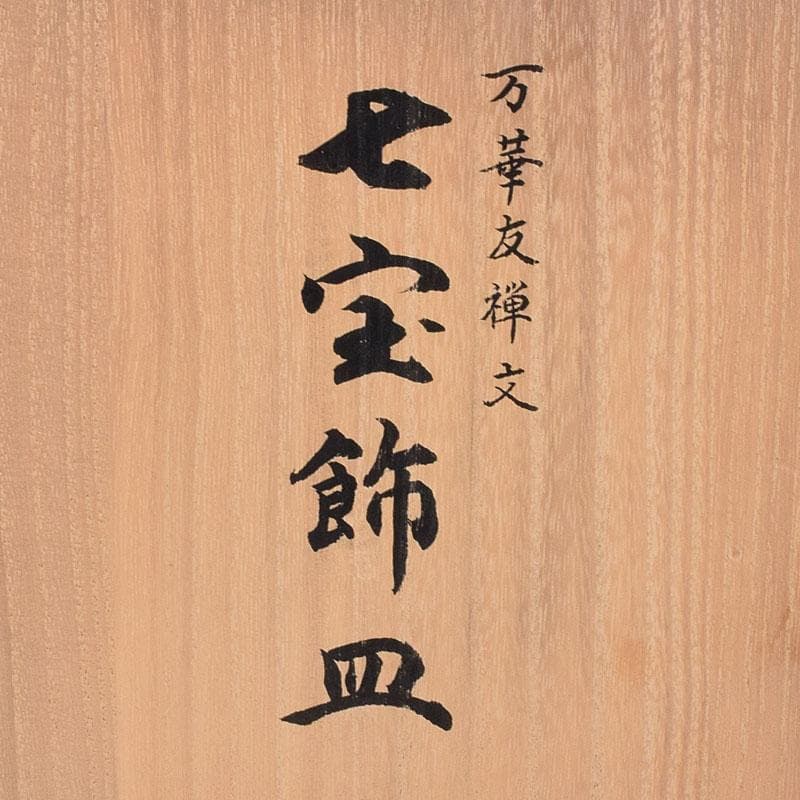 万華友禅文
七宝飾皿